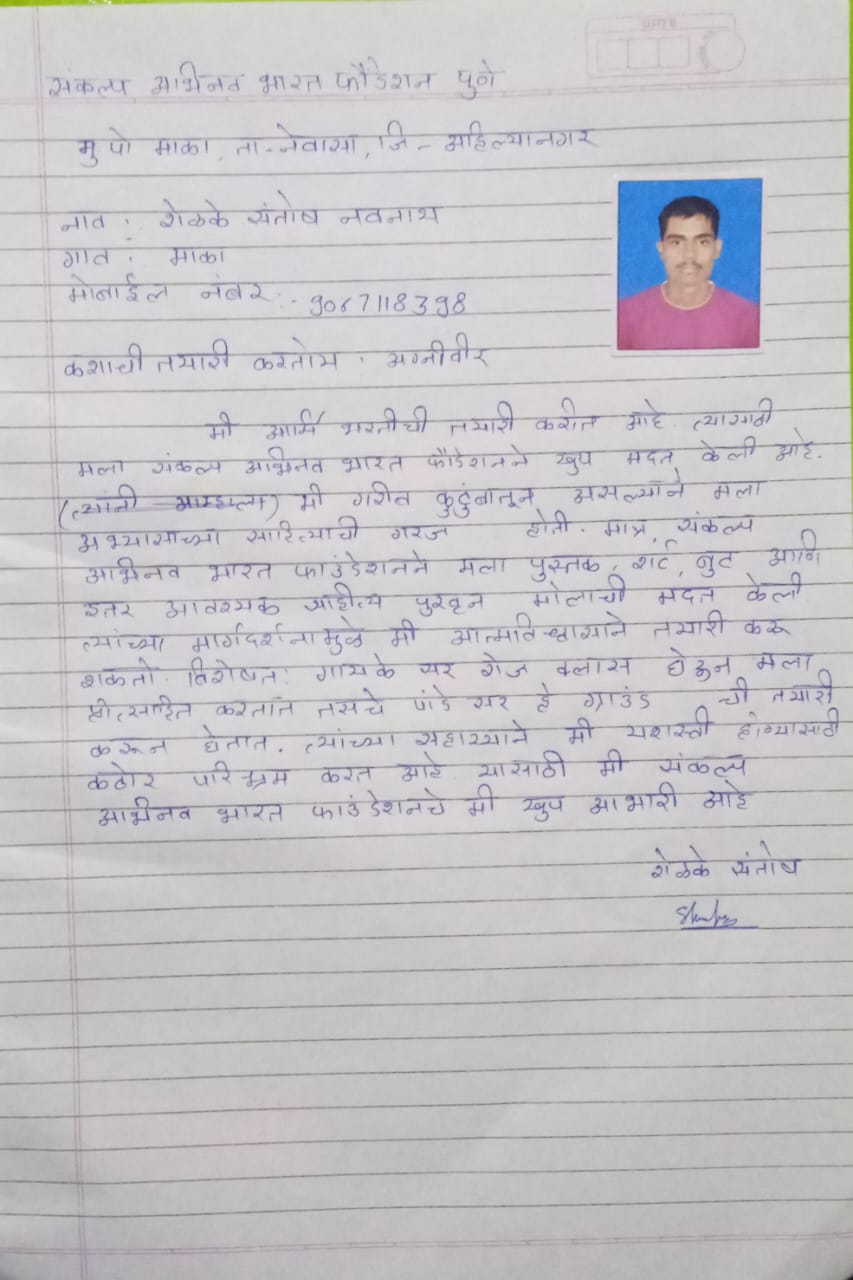 संकल्प अभिनव भारत फौंडेशन पुणे
मु पो माका, ता-नेवासा, जि - अहिल्यानगर
नाव : शेळके संतोष नवनाथ
गाव : माका
मोबाईल नंबर :- 9067118398
कशाची तयारी करतोय : अग्नीवीर
मी आर्मि भरतीची तयारी करीत आहे. त्यासाठी
मला संकल्प अभिनव भारत फौंडेशनने खुप मदत केली आहे.
(त्यांनी आम्हाला) मी गरीब कुटुंबातून असल्याने मला
अभ्यासाच्या साहित्याची गरज होती. मात्र, संकल्प
अभिनव भारत फाउंडेशनने मला पुस्तक, शर्ट, बुट आणि
इतर आवश्यक साहीत्य पुरवून मोलाची मदत केली
त्यांच्या मार्गदर्शनामुळे मी आत्मविश्वासाने तयारी करू
शकतो. विशेषत: गायके सर रोज क्लास घेऊन मला
प्रोत्साहित करतात तसचे पांडे सर हे ग्राउंड ची तयारी
करून घेतात. त्यांच्या सहाय्याने मी यशस्वी होण्यासाठी
कठोर परिश्रम करत आहे. यासाठी मी संकल्प
अभिनव भारत फाउंडेशनचे मी खुप आभारी आहे
शेळके संतोष